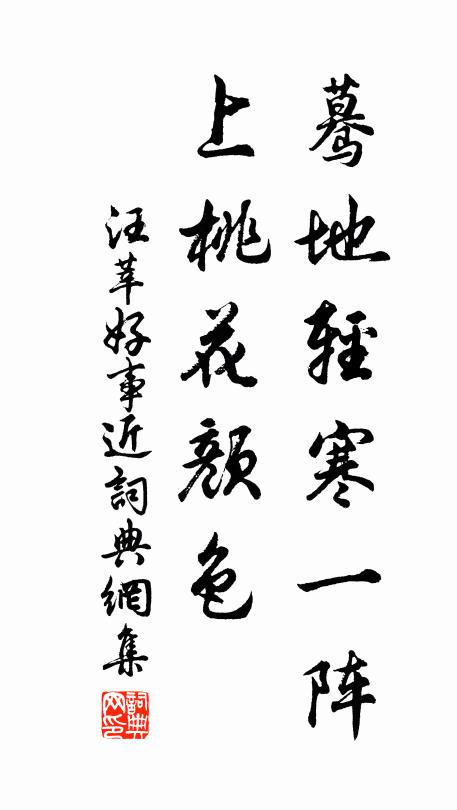 驀地輕寒一阵
上桃花顔色
汪莘好事近詞典網集
詞典網印